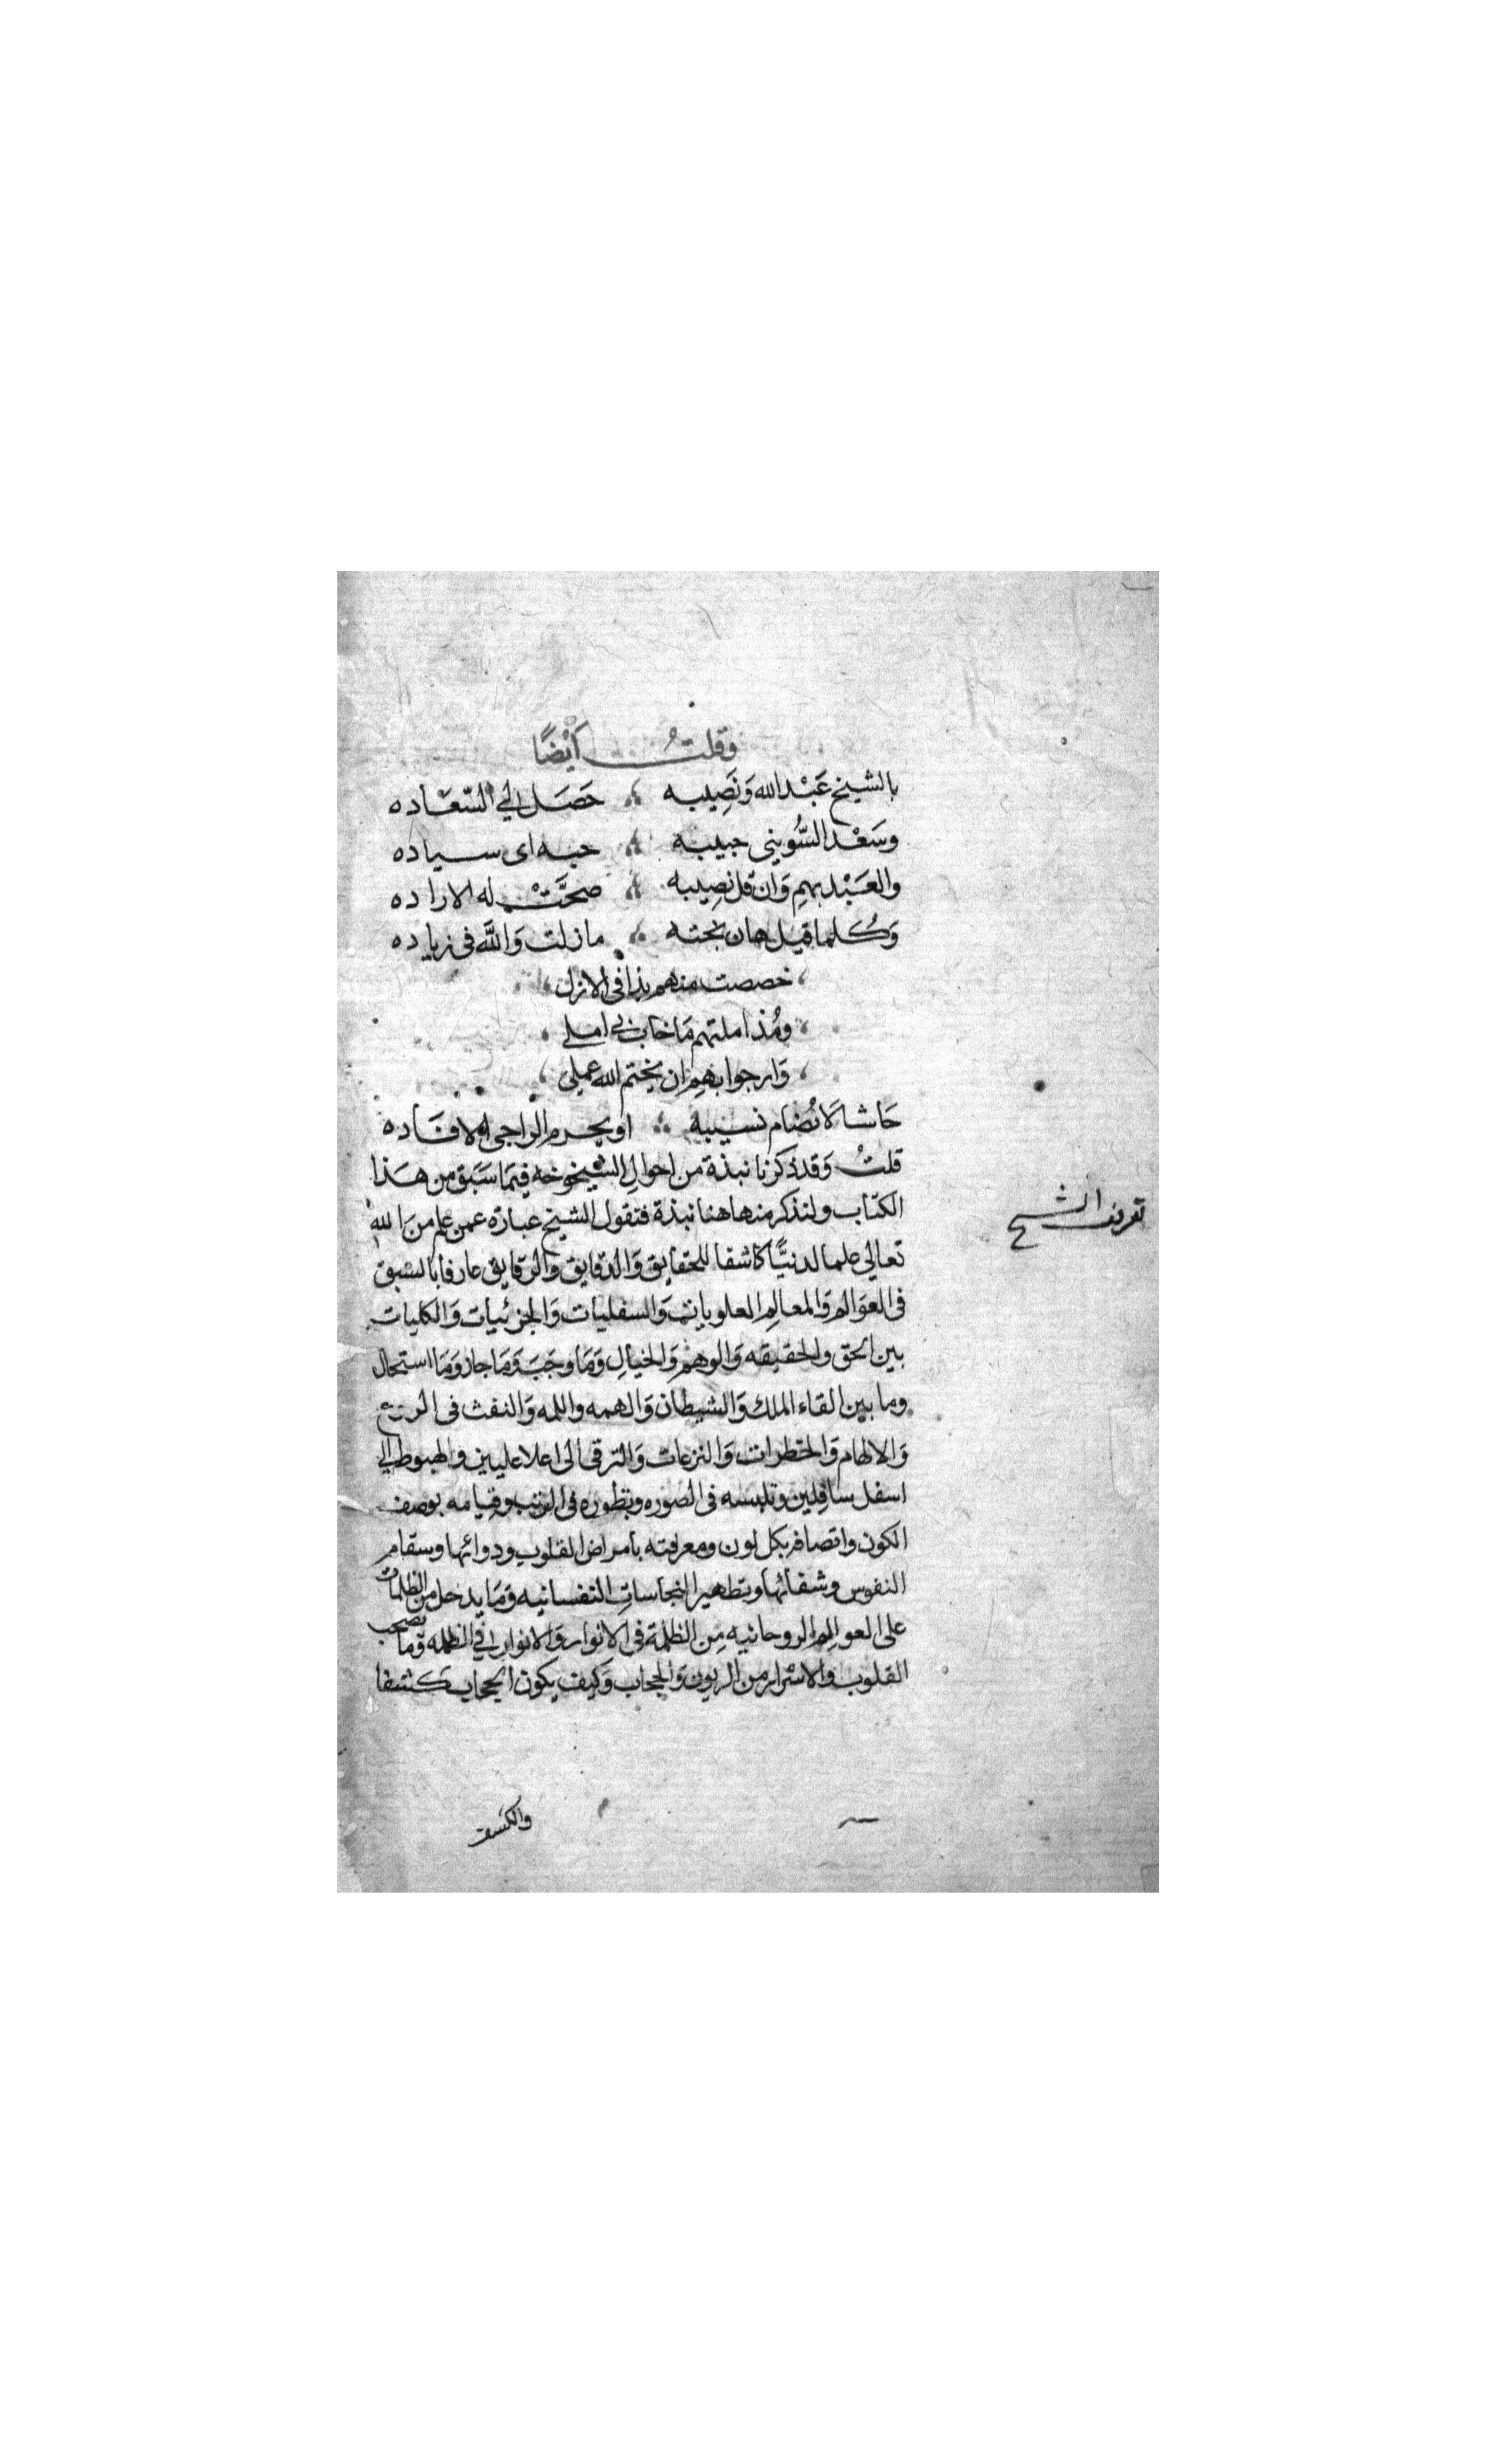 وقلتُ أَيْضًا
بالشيخ عَبْد الله وَنَصِيبه ؛ حَصَل لي السّعَاده
وسَعْد السُّوينى حبيبه ؛ حبه اى سياده
والعَبْد بهمِ وَان قل نصِيبه ؛ صحَّتْ له الاراده
وَكُلما قيل هان بخته ؛ مازلت وَاللَّه فى زياده
، خصصت منهم بذا فى الازل ،
، ومُذ املتهم مَا خاب لى املى ،
، وَارجوا بهِم ان يختم الله عملى ،
حَاشا لَا نُضام نسيبه ؛ او يحرم الراجى الافَاده
قلتُ وَقد ذكرنا نبذة من احوالِ الشيخوخه فيمَا سَبَق من هَذا
الكتاب ولنذكر منها هنا نبذة فنقول الشيخ عبارة عمن علم من اللهِ
تعالى علما لدنيًّا كاشفا للحقايق وَالدقايق وَالرقايق عارفا بالسَبق
فى العوَالم وَالمعالمِ العلويات وَالسفليات وَالجزئيات وَالكليات
بين الحق والحقيقه وَالوهم وَالخيالِ وَمَا وجَبَ وَمَا جاز وَمَا استحال
وما بين القاء الملك وَالشيطان وَالهمه واللمه وَالنفث فى الروع
وَالالهام وَالخطرات وَالنزعات وَالترقى الى اعلا عليين والهبوط الى
اسفل سافِلين وتلبسه فى الصوره وتطوره فى الرتب وقيامه بوصف
الكون واتصافه بكل لون ومعرفته بأمراض القلوب ودوائها وسقام
النفوس وشفائها وتطهير النجاساتِ النفسانيه وَمَا يدخل من الظلمات
على العوالِم الروحانيه مِن الظلمة فى الانوار وَالانوار فى الظلمه وَما يصحب
القلوب والاسْرار من الريون وَالحجاب وَكيف يكون الحجاب كَشفا
تعريف الشيخ
والكشف